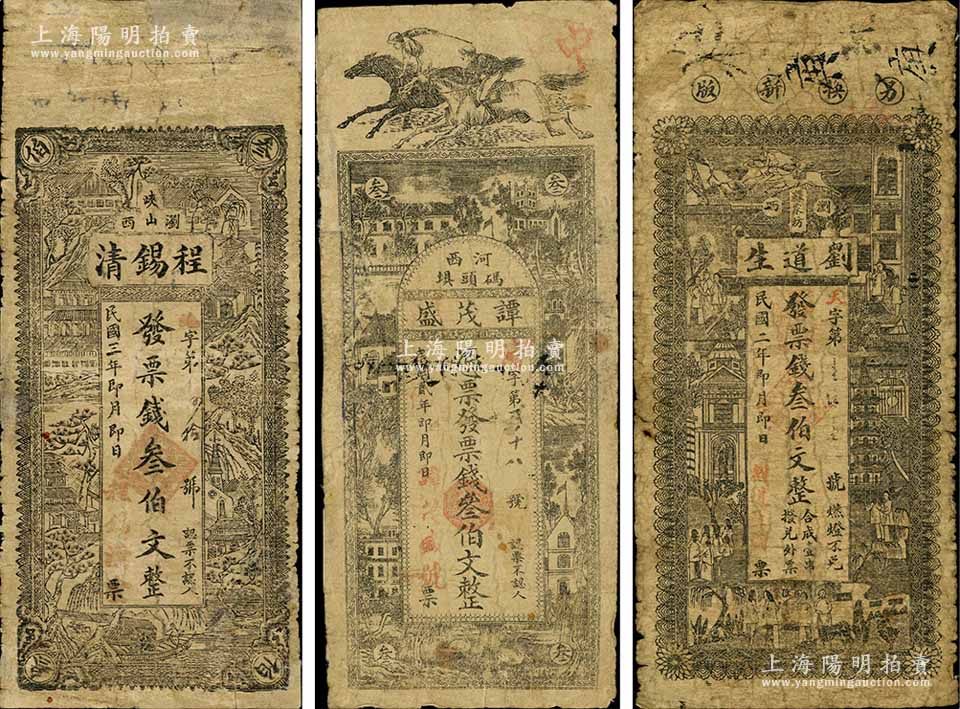 上海陽明拍賣
www.yangmingauction.com
伯
峡
西山瀏
清錫程
字第
號
認票不認人
發票錢叁伯文整
民國三年即月即日
票
中
叁
叁
西河
填頭碼
盛茂譚
字第
十八
號
認票不認人
票發票錢叁伯文整
貳年即月即日
號
票
叁
叁
上海陽明拍賣
www.yangmingauction.com
版新換另
西
瀏
生道劉
天字第
號
燈不兑
合成壹串
撥兑外票
發票錢叁伯文整
民國二年即月即日
票
上海陽明拍賣
www.yangmingauction.com